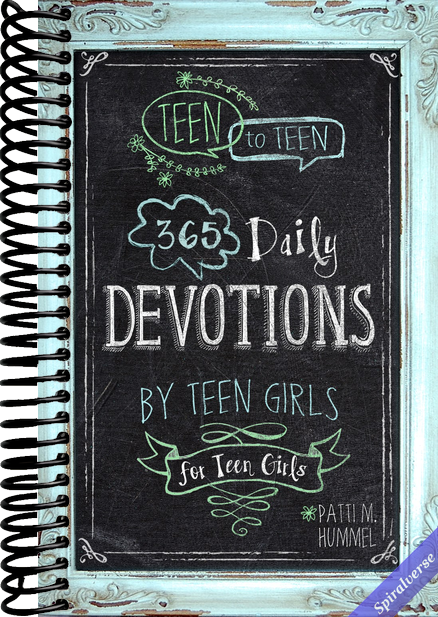 TEEN
to TEEN
365 Daily
DEVOTIONS
BY TEEN GIRLS
for Teen Girls
PATTI M.
HUMMEL
Spiralverse